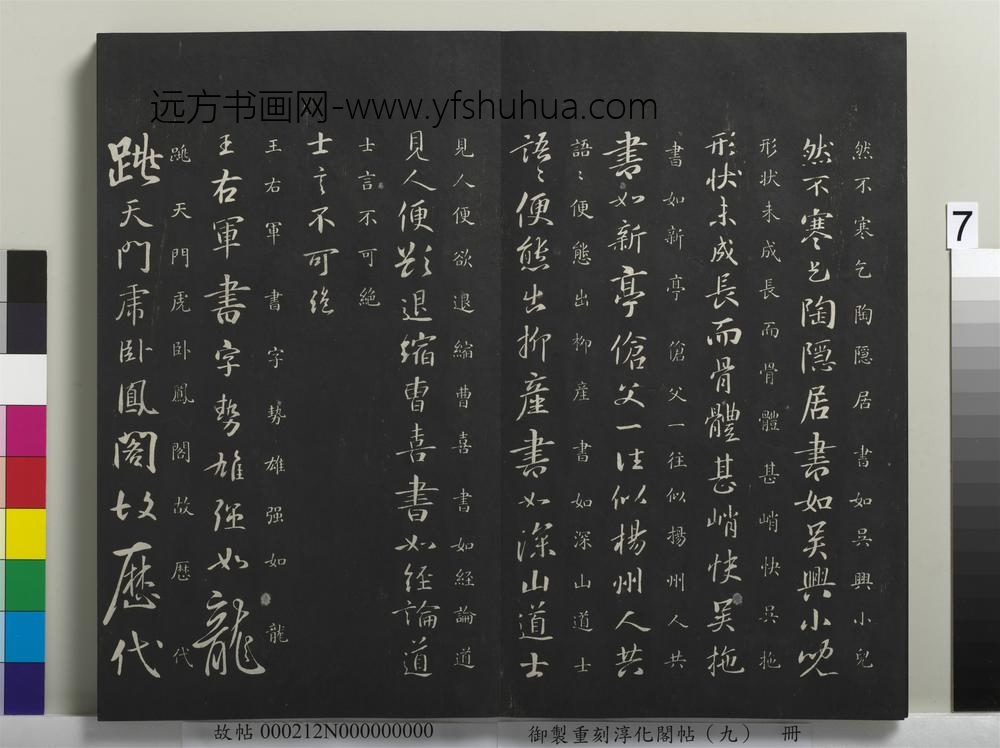 远方书画网-www.yfshuhua.com
然不寒乞陶隱居書如吳興小兒
然不寒乞陶隱居書如吳興小兒
形状未成長而骨體甚峭快吳拖
形状未成長而骨體甚峭快吳拖
書如新亭傖父一往似揚州人共
書如新亭傖父一往似楊州人共
語〻便態出柳産書如深山道士
語〻便態出柳産書如深山道士
見人便欲退縮曹喜書如経論道
見人便欲退縮曹喜書如経論道
士言不可絶
士言不可絶
王右軍書字勢雄强如龍
王右軍書字勢雄强如龍
跳天門虎卧鳳閣故歴代
跳天門虎卧鳳閣故歷代
7
故帖 000212N000000000
御製重刻淳化閣帖（九） 冊